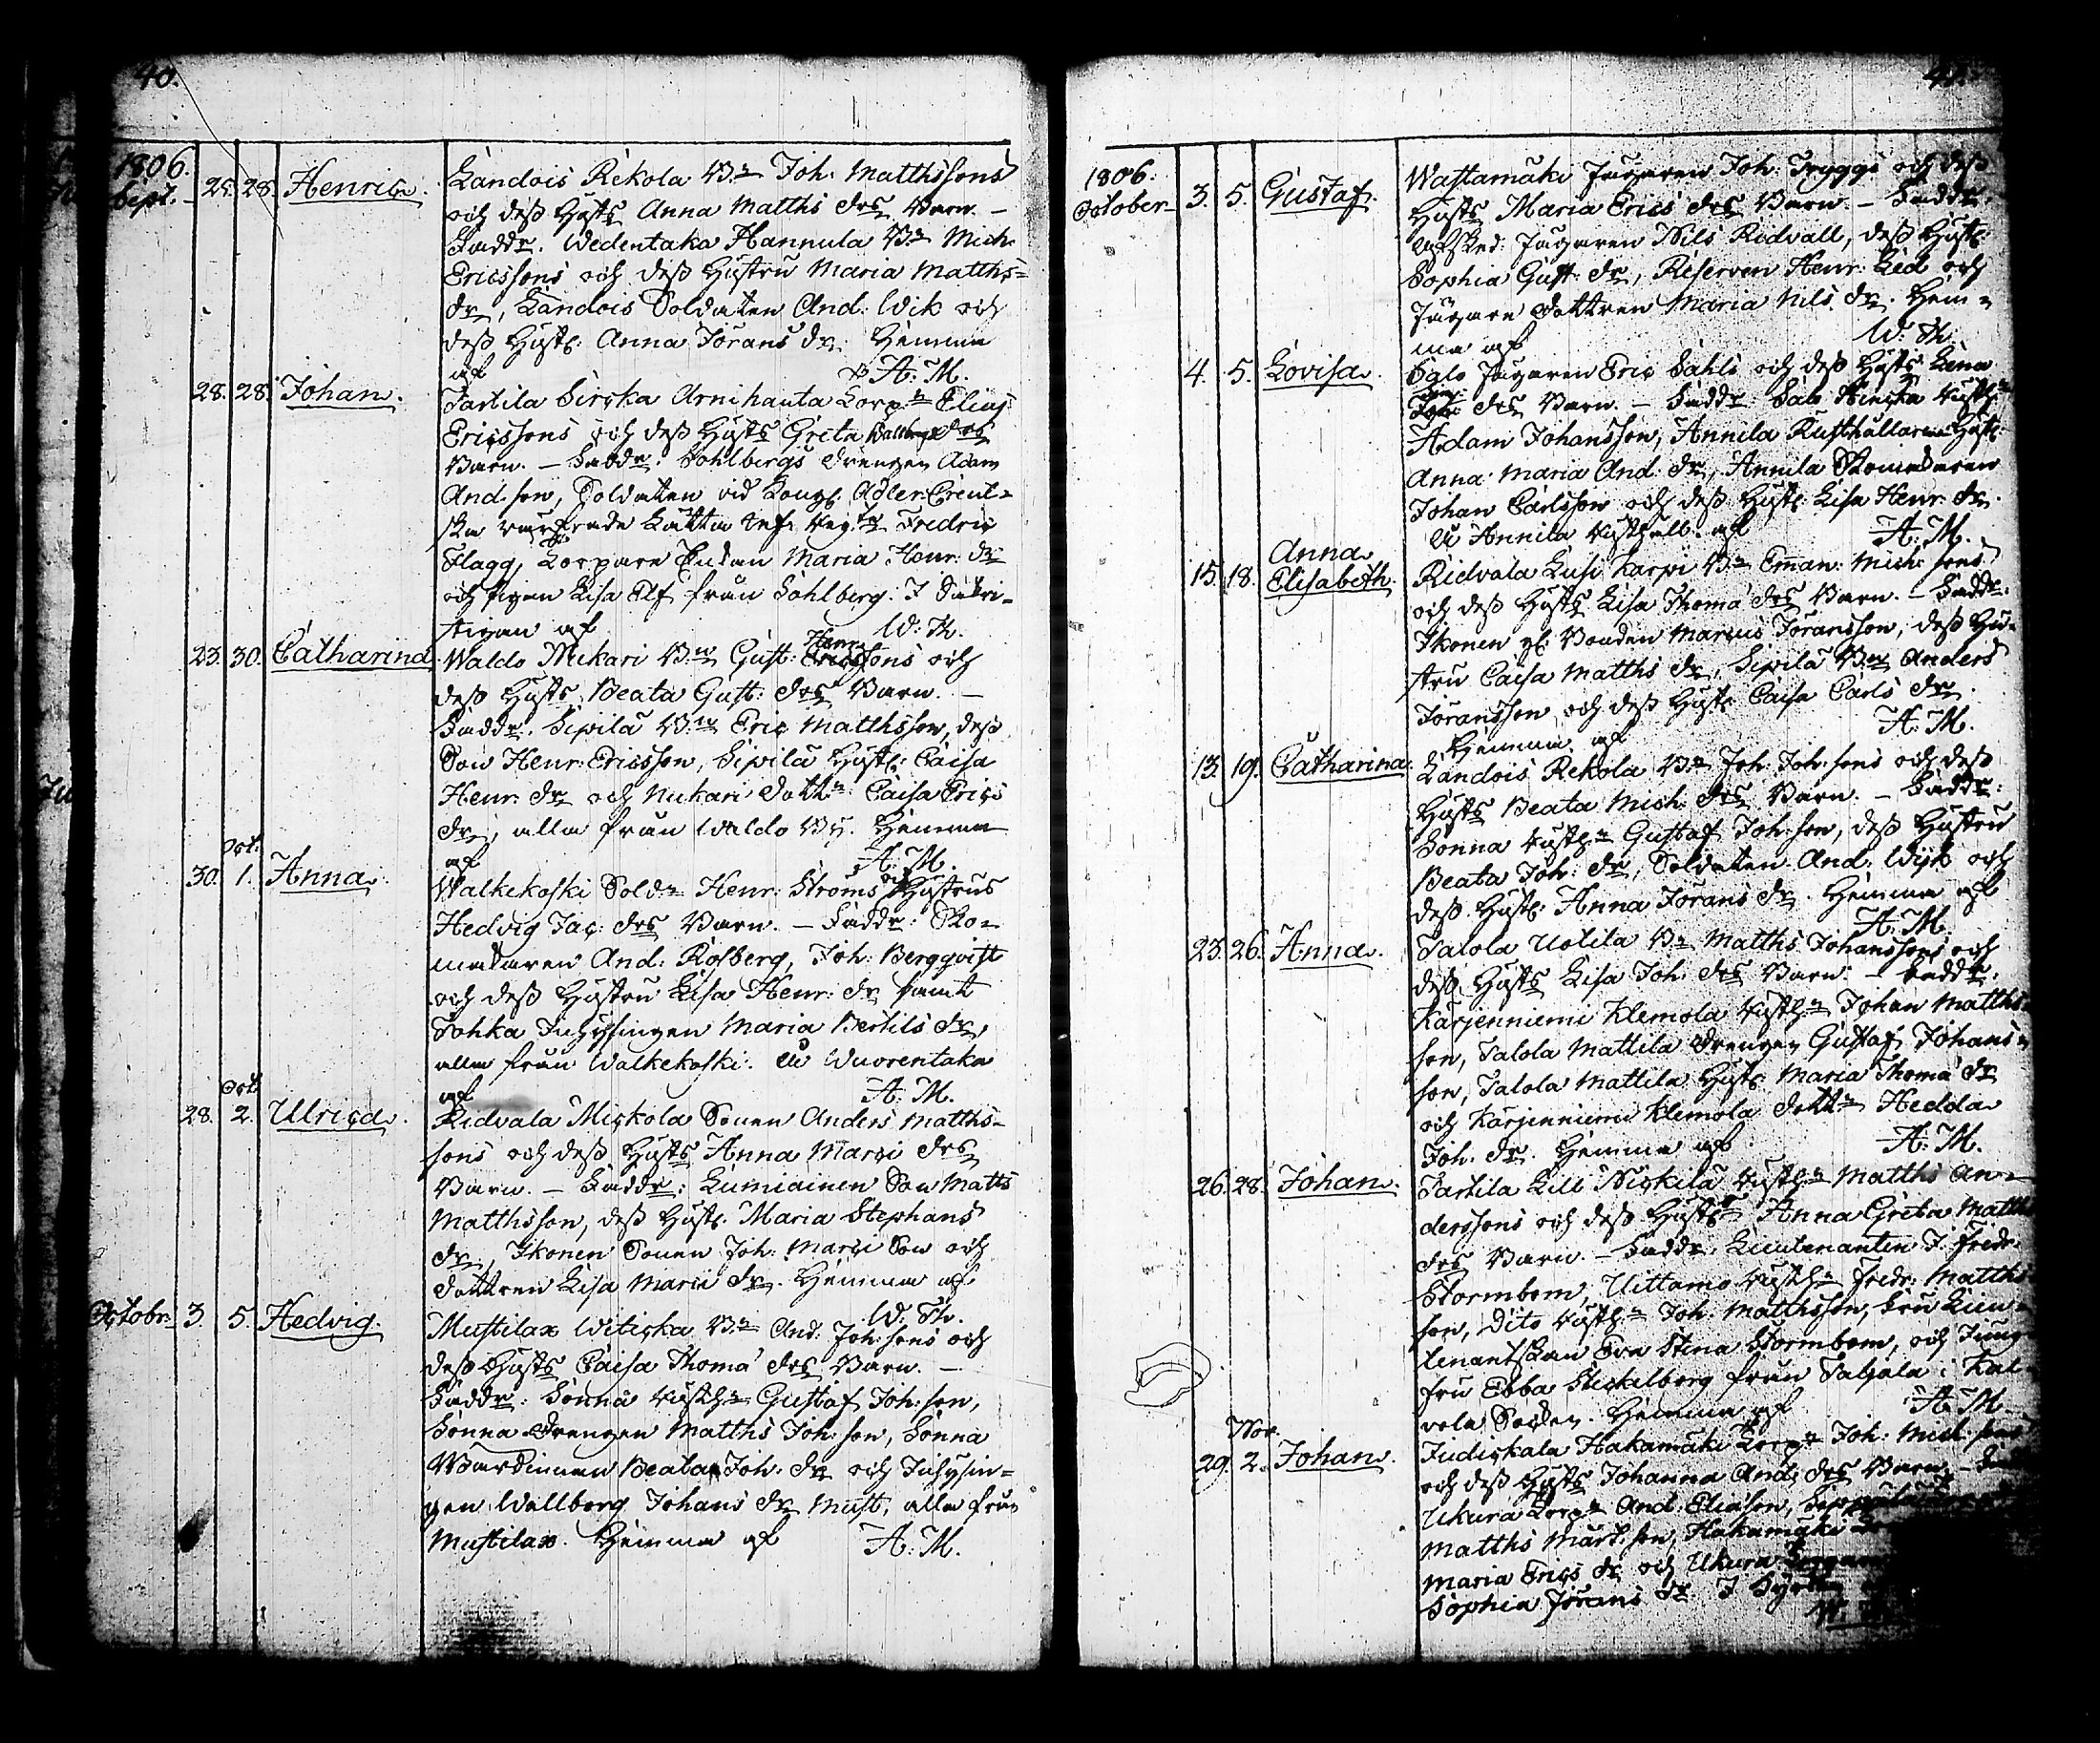 40.
1806.
Sept. 25. 28. Henric. Landois Rekola B:n Joh: Matthssons
och dess Hust: Anna Matths drs Barn. —
Faddr. Wedentaka Hannula B:n Mich:
Ericssons och dess Hustru Maria Matths=
dr, Landois Soldaten And: Wik och
dess Hust: Anna Jörans dr. Hemma
af A: M.
28. 28. Johan. Tartila Sirska Arnihauta Torp:n Elias
Ericssons och dess Hust:s Greta drs
Barn. — Faddr: Sohlbergs Drengen Adam
And:son, Soldaten vid Kongl. Adler Creut=
ska Fredric
Flagg, Torpare Enkan Maria Henr: dr
och Pigan Lisa Elf från Sohlberg: I Sakri=
stigan af W: Th.
23. 30. Catharina Waldo Nukari B:n Gust: Henr:sons och
dess Hust:s Beata Gust: drs Barn. —
Faddr. Sipilä B:n Eric Matthsson, dess
Son Henr: Ericsson, Sipilä Hust: Caisa
Henr: dr och Nukari Dott:n Caisa Erics
dr, alla från Waldo By. Hemma
af A: M.
Oct.
30. 1. Anna. Walkekoski Sold:n Henr: Ströms och Hustrus
Hedvig Jac: drs Barn. — Faddr: Sko=
makaren And: Rosberg, Joh: Bergqvist
och dess Hustru Lisa Henr: dr samt
Tohka Inhysingen Maria Bertils dr,
alla från Walkekoski. Uti Wuorentaka
af A: M.
Oct.
28. 2. Ulrica. Ridvala Mickola Sonen Anders Matths=
sons och dess Hust:s Anna Marci drs
Barn. — Faddr: Lumiainen Son Matts
Matthsson, dess Hust: Maria Stephans
dr, Ikonen Sonen Joh: Marci Son och
Dottren Lisa Marci dr. Hemma af
W: Th.
Octobr: 3. 5. Hedvig. Mustilax Witiska B:n And: Joh:sons och
dess Hust:s Caisa Thomæ drs Barn. —
Faddr: Sonna Rusth:n Gustaf Joh:son,
Sonna Drengen Matths Joh:son, Sonna
Wärdinnan Beata Joh: dr och Inhysin=
gen Wallborg Johans dr Must, alla från
Mustilax. Hemma af A: M.
1806.
October 3. 5. Gustaf. Wastamäki Jägaren Joh: Tryggs och dess
Hust:s Maria Erics drs Barn. — Faddr:
Afsked: Jägaren Nils Ridvall, dess Hust:
Sophia Gust: dr, Reserven Henr: Led och
Jägare Dottren Maria Nils dr. Hem=
ma af W: Th.
4. 5. Lovisa. Salo Jägaren Eric Sahls och dess Hust:s Lena
drs Barn. — Faddr: Salo Rusth:n
Adam Johansson, Annila Rusthållarens Hust:
Anna Maria And: dr, Annila Skomakaren
Johan Carlsson och dess Hust: Lisa Henr: dr.
Uti Annila Rusthåll af A: M.
15. 18. Anna
Elisabeth. Ridvala Lusi Karpi B:n Eman: Mich:sons
och dess Hust:s Lisa Thomæ drs Barn. — Faddr:
Ikonen gl. Bonden Marcus Jöransson, dess Hu=
stru Caisa Matths dr, Sipilä B:n Anders
Jöransson och dess Hust: Caisa Carls dr.
Hemma af A: M.
13. 19. Catharina. Landois Rekola B:n Joh: Joh:sons och dess
Hust:s Beata Mich: drs Barn. — Faddr:
Sonna Rusth:n Gustaf Joh:son, dess Hustru
Beata Joh: dr, Soldaten And: Wik och
dess Hust: Anna Jörans dr. Hemma af
A: M.
23. 26. Anna. Talola Uotila B:n Matths Johanssons och
dess Hust:s Lisa Joh: drs Barn. — Faddr:
Karjenniemi Klemola Rusth:n Johan Matths
son, Talola Mattila Drengen Gustaf Johans=
son, Talola Mattila Hust: Maria Thomæ dr
och Karjenniemi Klemola Dott:n Hedda
Joh: dr. Hemma af A: M.
26. 28. Johan. Tartila Lill Nickilä Rusth:n Matths An=
derssons och dess Hust:s Anna Greta Matths
drs Barn. — Faddr: Lieutenanten J. Fredr.
Stormbom, Uittamo Rusth:n Fredr: Matths
son, Dito Rusth:n Joh: Matthsson, Fru Lieu=
tenantskan Eva Stina Stormbom, och Jung
fru Ebba Stickelborg från Saljala i Kal=
vola Socken. Hemma af A: M.
Nov.
29. 2. Johan. Judickala Hakamäki Torp:n Joh: Mich:sons
och dess Hust:s Johanna And: drs Barn. —
Ukura Torp:n And: Eliason,
Matths Mårt:son, Hakamäki
Maria Erics dr och Ukura
Sophia Jörans dr I